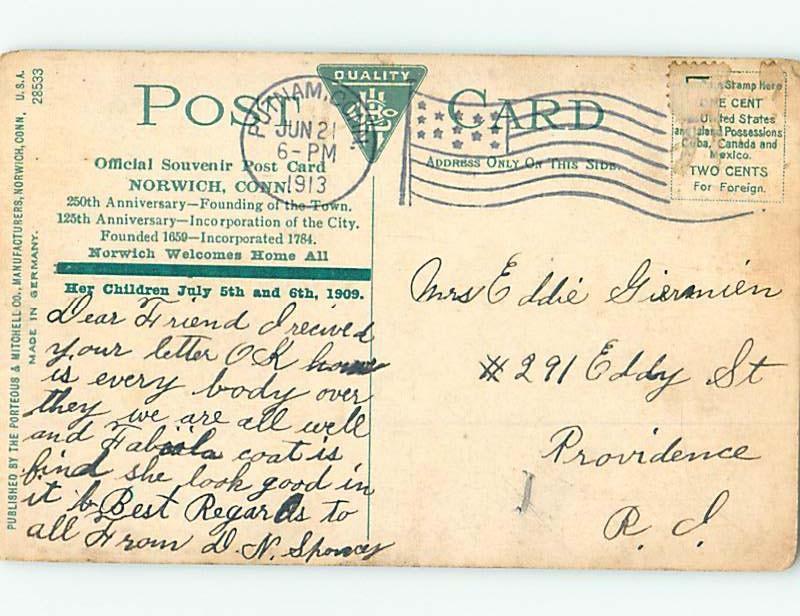 PUBLISHED BY THE PORTEOUS & MITCHELL CO., MANUFACTURERS, NORWICH, CONN., U.S.A.
MADE IN GERMANY.
28533
POST CARD
QUALITY
PUTNAM, CONN.
JUN 21
6-PM
1913
Official Souvenir Post Card
NORWICH, CONN.
250th Anniversary—Founding of the Town.
125th Anniversary—Incorporation of the City.
Founded 1659—Incorporated 1784.
Norwich Welcomes Home All
Her Children July 5th and 6th, 1909.
ADDRESS ONLY ON THIS SIDE.
Stamp Here
ONE CENT
United States
and Island Possessions
Cuba, Canada and
Mexico.
TWO CENTS
For Foreign.
Dear Friend I recived
your letter OK how
is every body over
they we are all well
and coat is
find she look good in
it Best Regards to
all From D. N. Spencer
Mrs Eddie Giermien
#291 Eddy St
Providence
R. I.